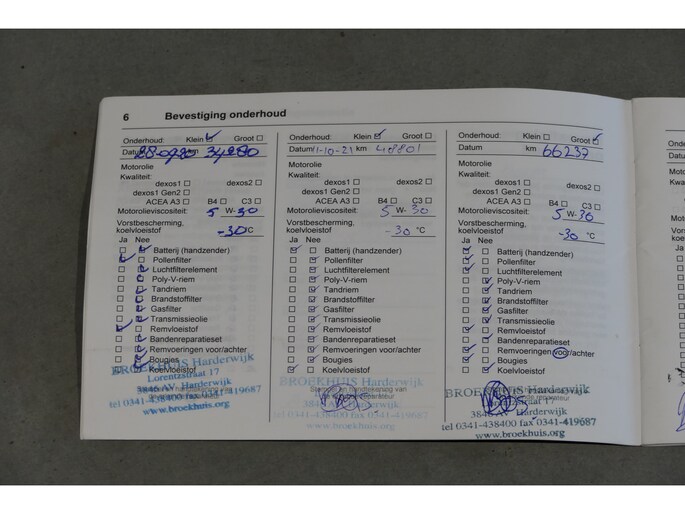 6 Bevestiging onderhoud
Onderhoud: Klein Groot
Datum 28-07-20 km 34280
Motorolie
Kwaliteit:
dexos1 dexos2
dexos1 Gen2
ACEA A3 B4 C3
Motorolieviscositeit: 5 W-30
Vorstbescherming,
koelvloeistof -30°C
Ja Nee
Batterij (handzender)
Pollenfilter
Luchtfilterelement
Poly-V-riem
Tandriem
Brandstoffilter
Gasfilter
Transmissieolie
Remvloeistof
Bandenreparatieset
Remvoeringen voor/achter
Bougies
Koelvloeistof
BROEKHUIS Harderwijk
Lorentzstraat 17
3846 AV Harderwijk
tel 0341-438400 fax 0341-419687
www.broekhuis.org
Onderhoud: Klein Groot
Datum 1-10-21 km 48801
Motorolie
Kwaliteit:
dexos1 dexos2
dexos1 Gen2
ACEA A3 B4 C3
Motorolieviscositeit: 5 W-30
Vorstbescherming,
koelvloeistof -30°C
Ja Nee
Batterij (handzender)
Pollenfilter
Luchtfilterelement
Poly-V-riem
Tandriem
Brandstoffilter
Gasfilter
Transmissieolie
Remvloeistof
Bandenreparatieset
Remvoeringen voor/achter
Bougies
Koelvloeistof
BROEKHUIS Harderwijk
Stempel en handtekening van
tel 0341-438400 fax 0341-419687
www.broekhuis.org
Onderhoud: Klein Groot
Datum km 66237
Motorolie
Kwaliteit:
dexos1 dexos2
dexos1 Gen2
ACEA A3 B4 C3
Motorolieviscositeit: 5 W-30
Vorstbescherming,
koelvloeistof -30°C
Ja Nee
Batterij (handzender)
Pollenfilter
Luchtfilterelement
Poly-V-riem
Tandriem
Brandstoffilter
Gasfilter
Transmissieolie
Remvloeistof
Bandenreparatieset
Remvoeringen voor/achter
Bougies
Koelvloeistof
BROEKHUIS Harderwijk
Lorentzstraat 17
3846 AV Harderwijk
tel 0341-438400 fax 0341-419687
www.broekhuis.org